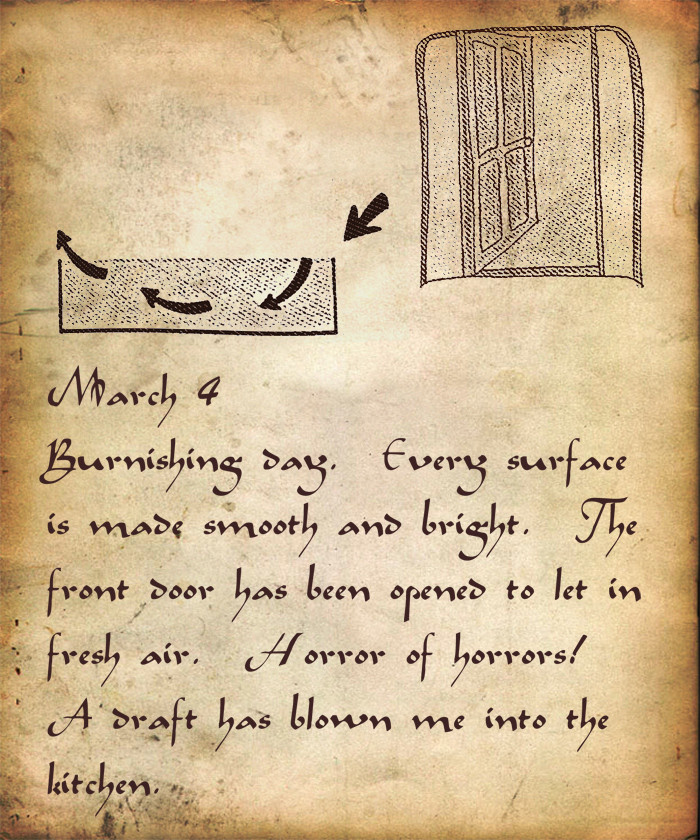 March 4
Burnishing day. Every surface
is made smooth and bright. The
front door has been opened to let in
fresh air. Horror of horrors!
A draft has blown me into the
kitchen.